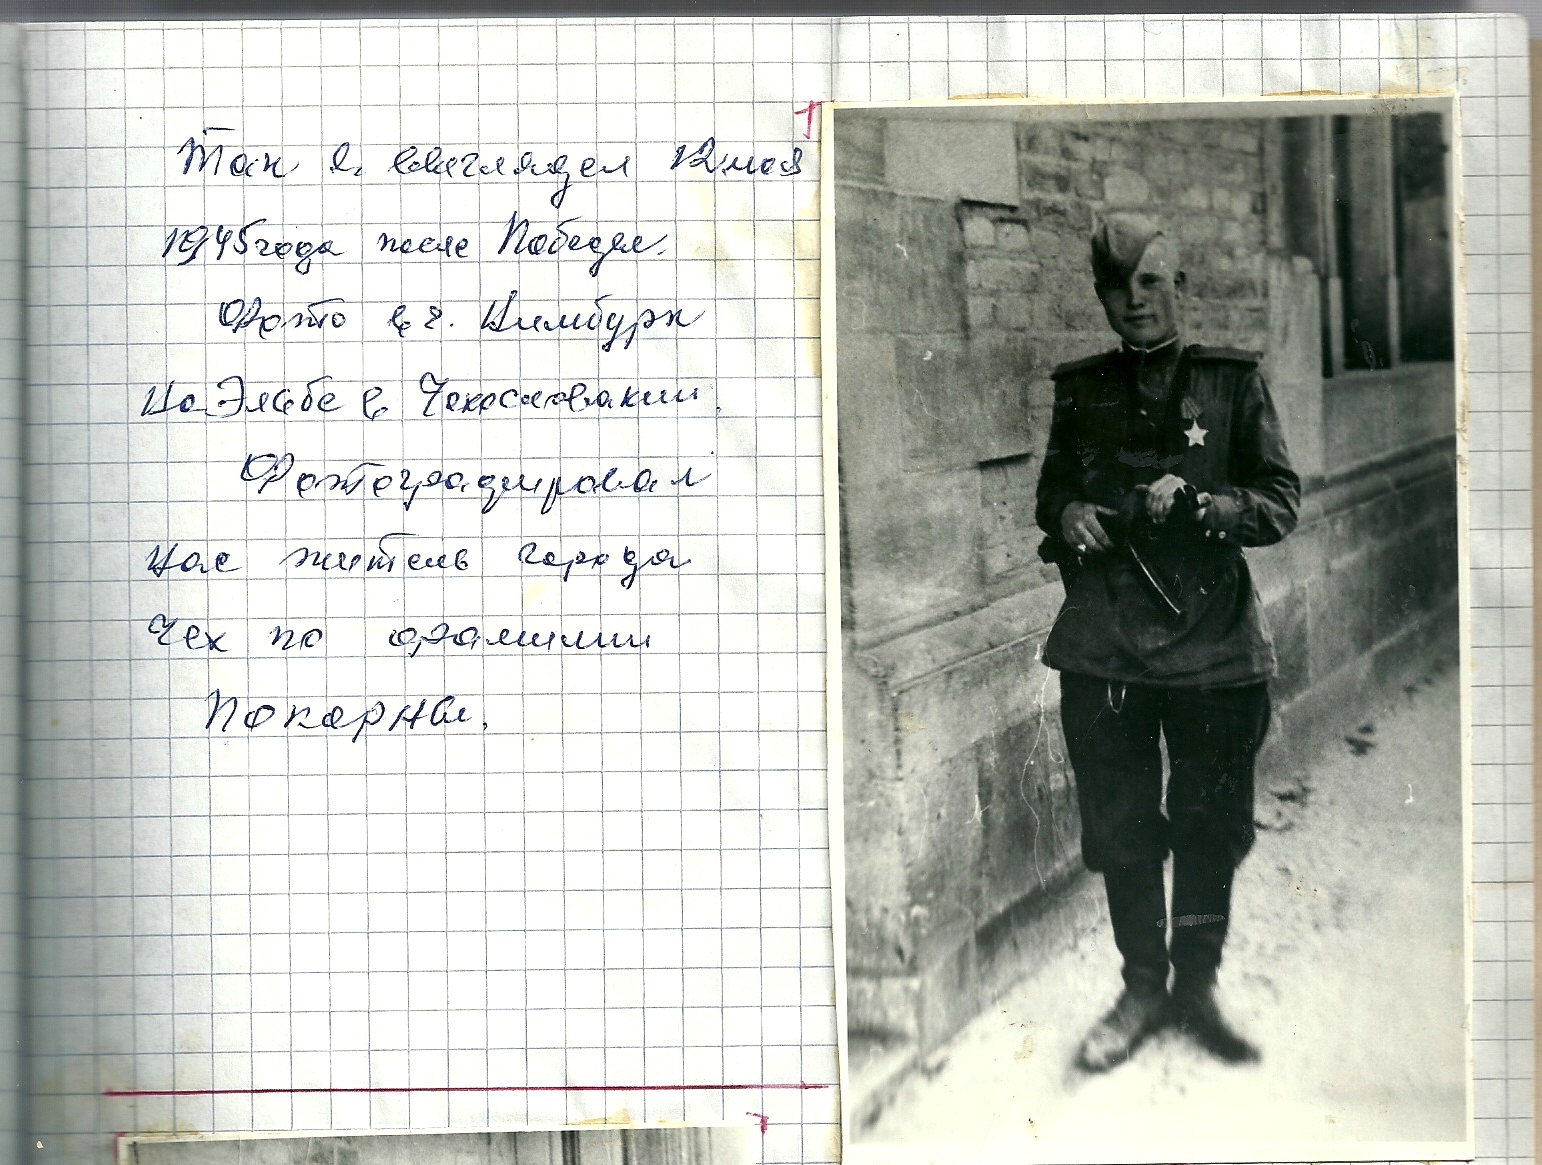 Так я выглядел 12 мая
1945 года после Победы.
Фото в г. Нимбурк
на Эльбе в Чехословакии.
Фотографировал
нас житель города
Чех по фамилии
Покорны.